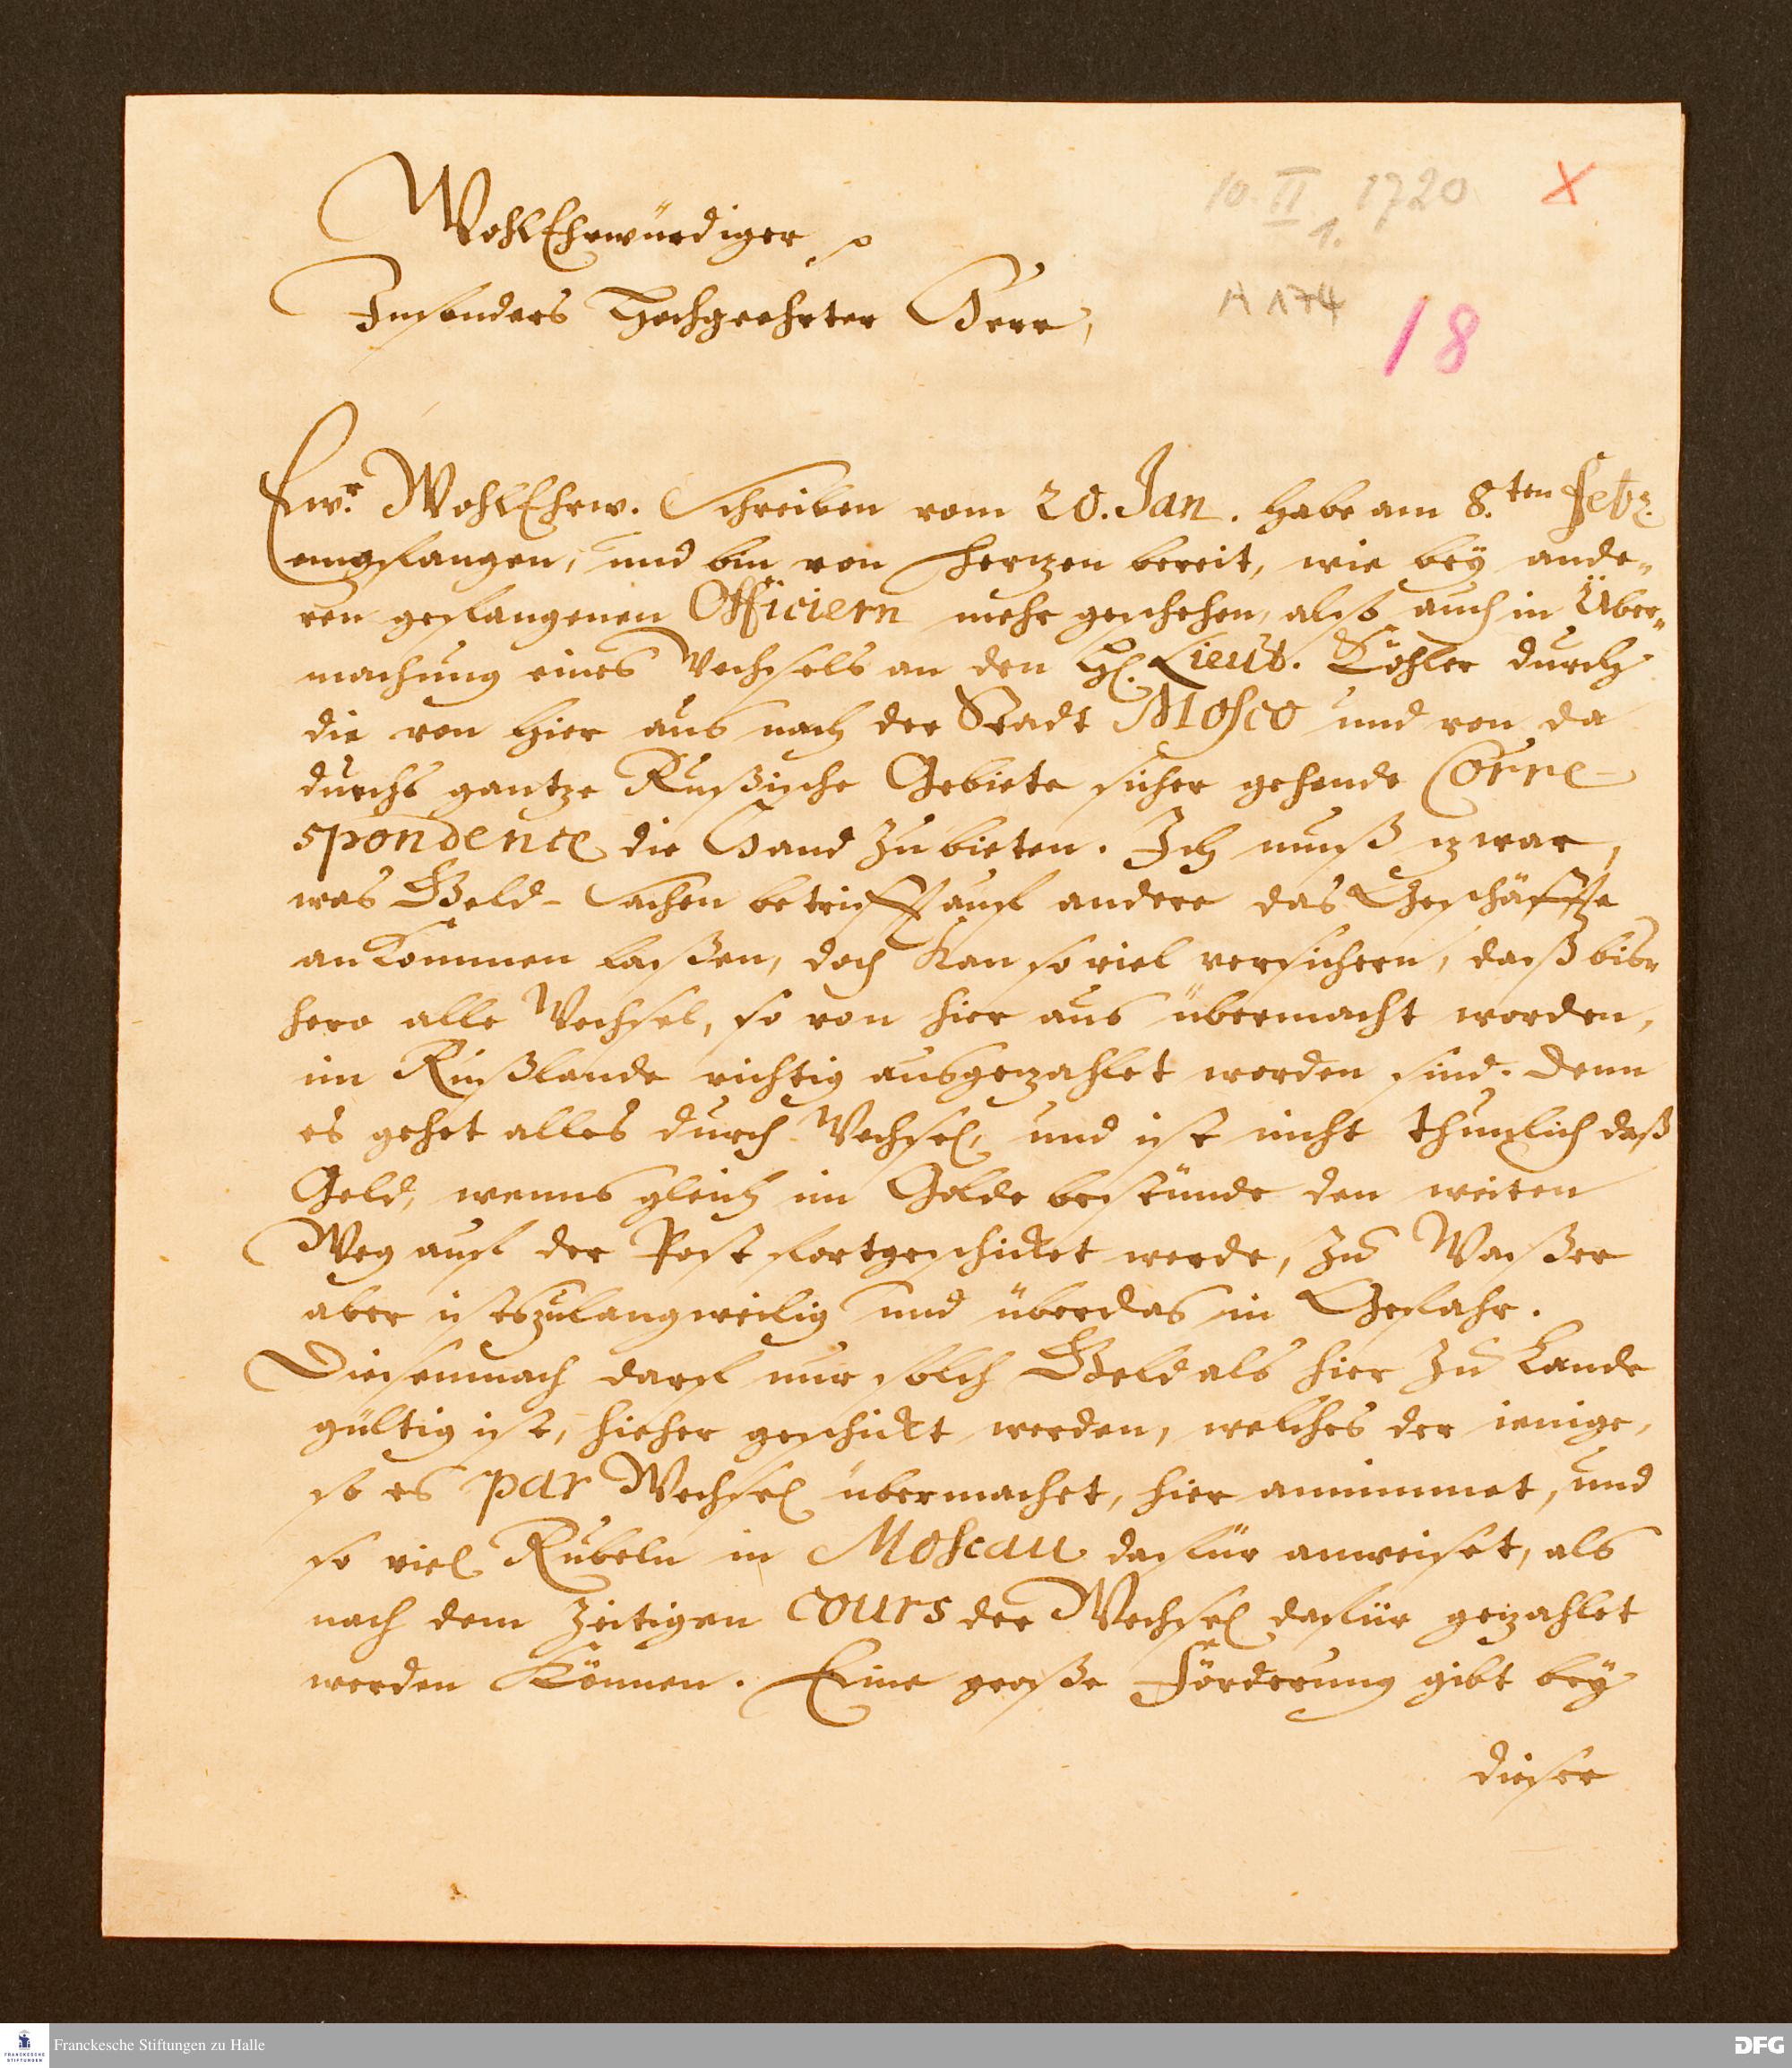 10. II. 1720
1.
X
A 174
18
WohlEhrwürdiger p
Insonders Hochgeehrter Herr,
Ewr. WohlEhrw. Schreiben vom 20. Jan. habe am 8.ten Febr.
empfangen, und bin von Hertzen bereit, wie bey ande-
ren gefangenen Officiern mehr geschehen, also auch in Über-
machung eines Wechsels an den H. Lieut. Köhler durch
die von hier aus nach der Stadt Mosco und von da
durchs gantze Rußische Gebiete sicher gehende Corre-
spondence die Hand zu bieten. Ich muß zwar,
was Geld-Sachen betrifft auf andere das Geschäffte
ankommen laßen, doch kan so viel versichern, daß bis-
hero alle Wechsel, so von hier aus übermacht worden,
im Rußlande richtig ausgezahlet worden sind. Denn
es gehet alles durch Wechsel, und ist nicht thunlich daß
Geld, wenns gleich im Golde bestünde den weiten
Weg auf der Post fortgeschicket werde, zu Waßer
aber ists zu langweilig und überdas in Gefahr.
Diesemnach darf nur solch Geld als hier zu Lande
gültig ist, hieher geschickt werden, welches der ienige,
so es par Wechsel übermachet, hier annimmet, und
so viel Rubeln in Moscau dafür anweiset, als
nach dem zeitigen cours der Wechsel dafür gezahlet
werden können. Eine große Förderung gibt bey
dieser
Franckesche Stiftungen zu Halle
FRANCKESCHE
STIFTUNGEN
DFG